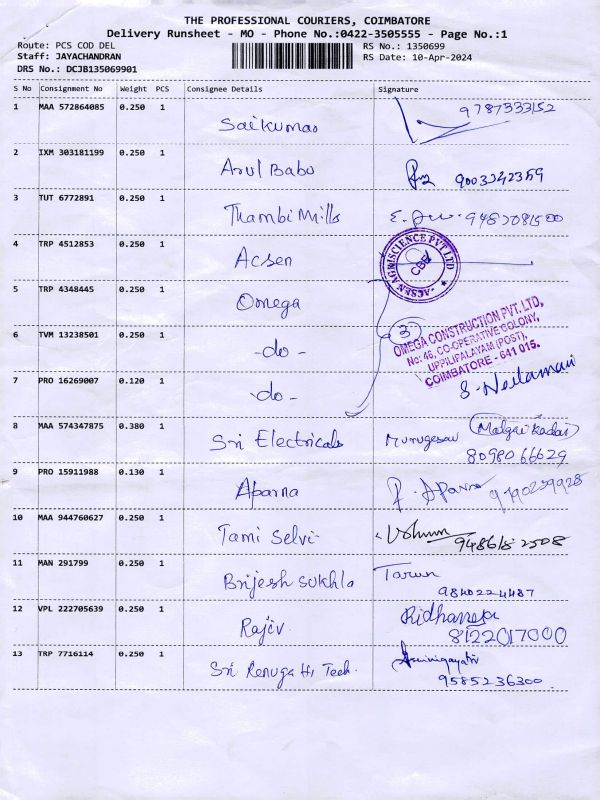 THE PROFESSIONAL COURIERS, COIMBATORE
Delivery Runsheet - MO - Phone No.:0422-3505555 - Page No.:1
Route: PCS COD DEL
RS No.: 1350699
Staff: JAYACHANDRAN
RS Date: 10-Apr-2024
DRS No.: DCJB135069901
S No Consignment No Weight PCS Consignee Details Signature
1 MAA 572864085 0.250 1 Saikumar 9787333152
2 IXM 303181199 0.250 1 Arul Babu 9003242359
3 TUT 6772891 0.250 1 Thambi Mills
4 TRP 4512853 0.250 1 Acsen
ACSEN AGRISCIENCE PVT LTD
CBE
5 TRP 4348445 0.250 1 Omega
6 TVM 13238501 0.250 1 -do-
3
OMEGA CONSTRUCTION PVT. LTD,
No: 46, CO-OPERATIVE COLONY,
UPPILIPALAYAM (POST),
COIMBATORE - 641 015.
7 PRO 16269007 0.120 1 -do-
8 MAA 574347875 0.380 1 Sri Electricals Murugesan Maligai Kadai
8098066629
9 PRO 15911988 0.130 1 Aparna P. Aparna
10 MAA 944760627 0.250 1 Tami Selvi
11 MAN 291799 0.250 1 Brijesh Sukhla Tarun
9840224487
12 VPL 222705639 0.250 1 Rajiv
8122017000
13 TRP 7716114 0.250 1 Sri Renugathi Tech.
9585236300